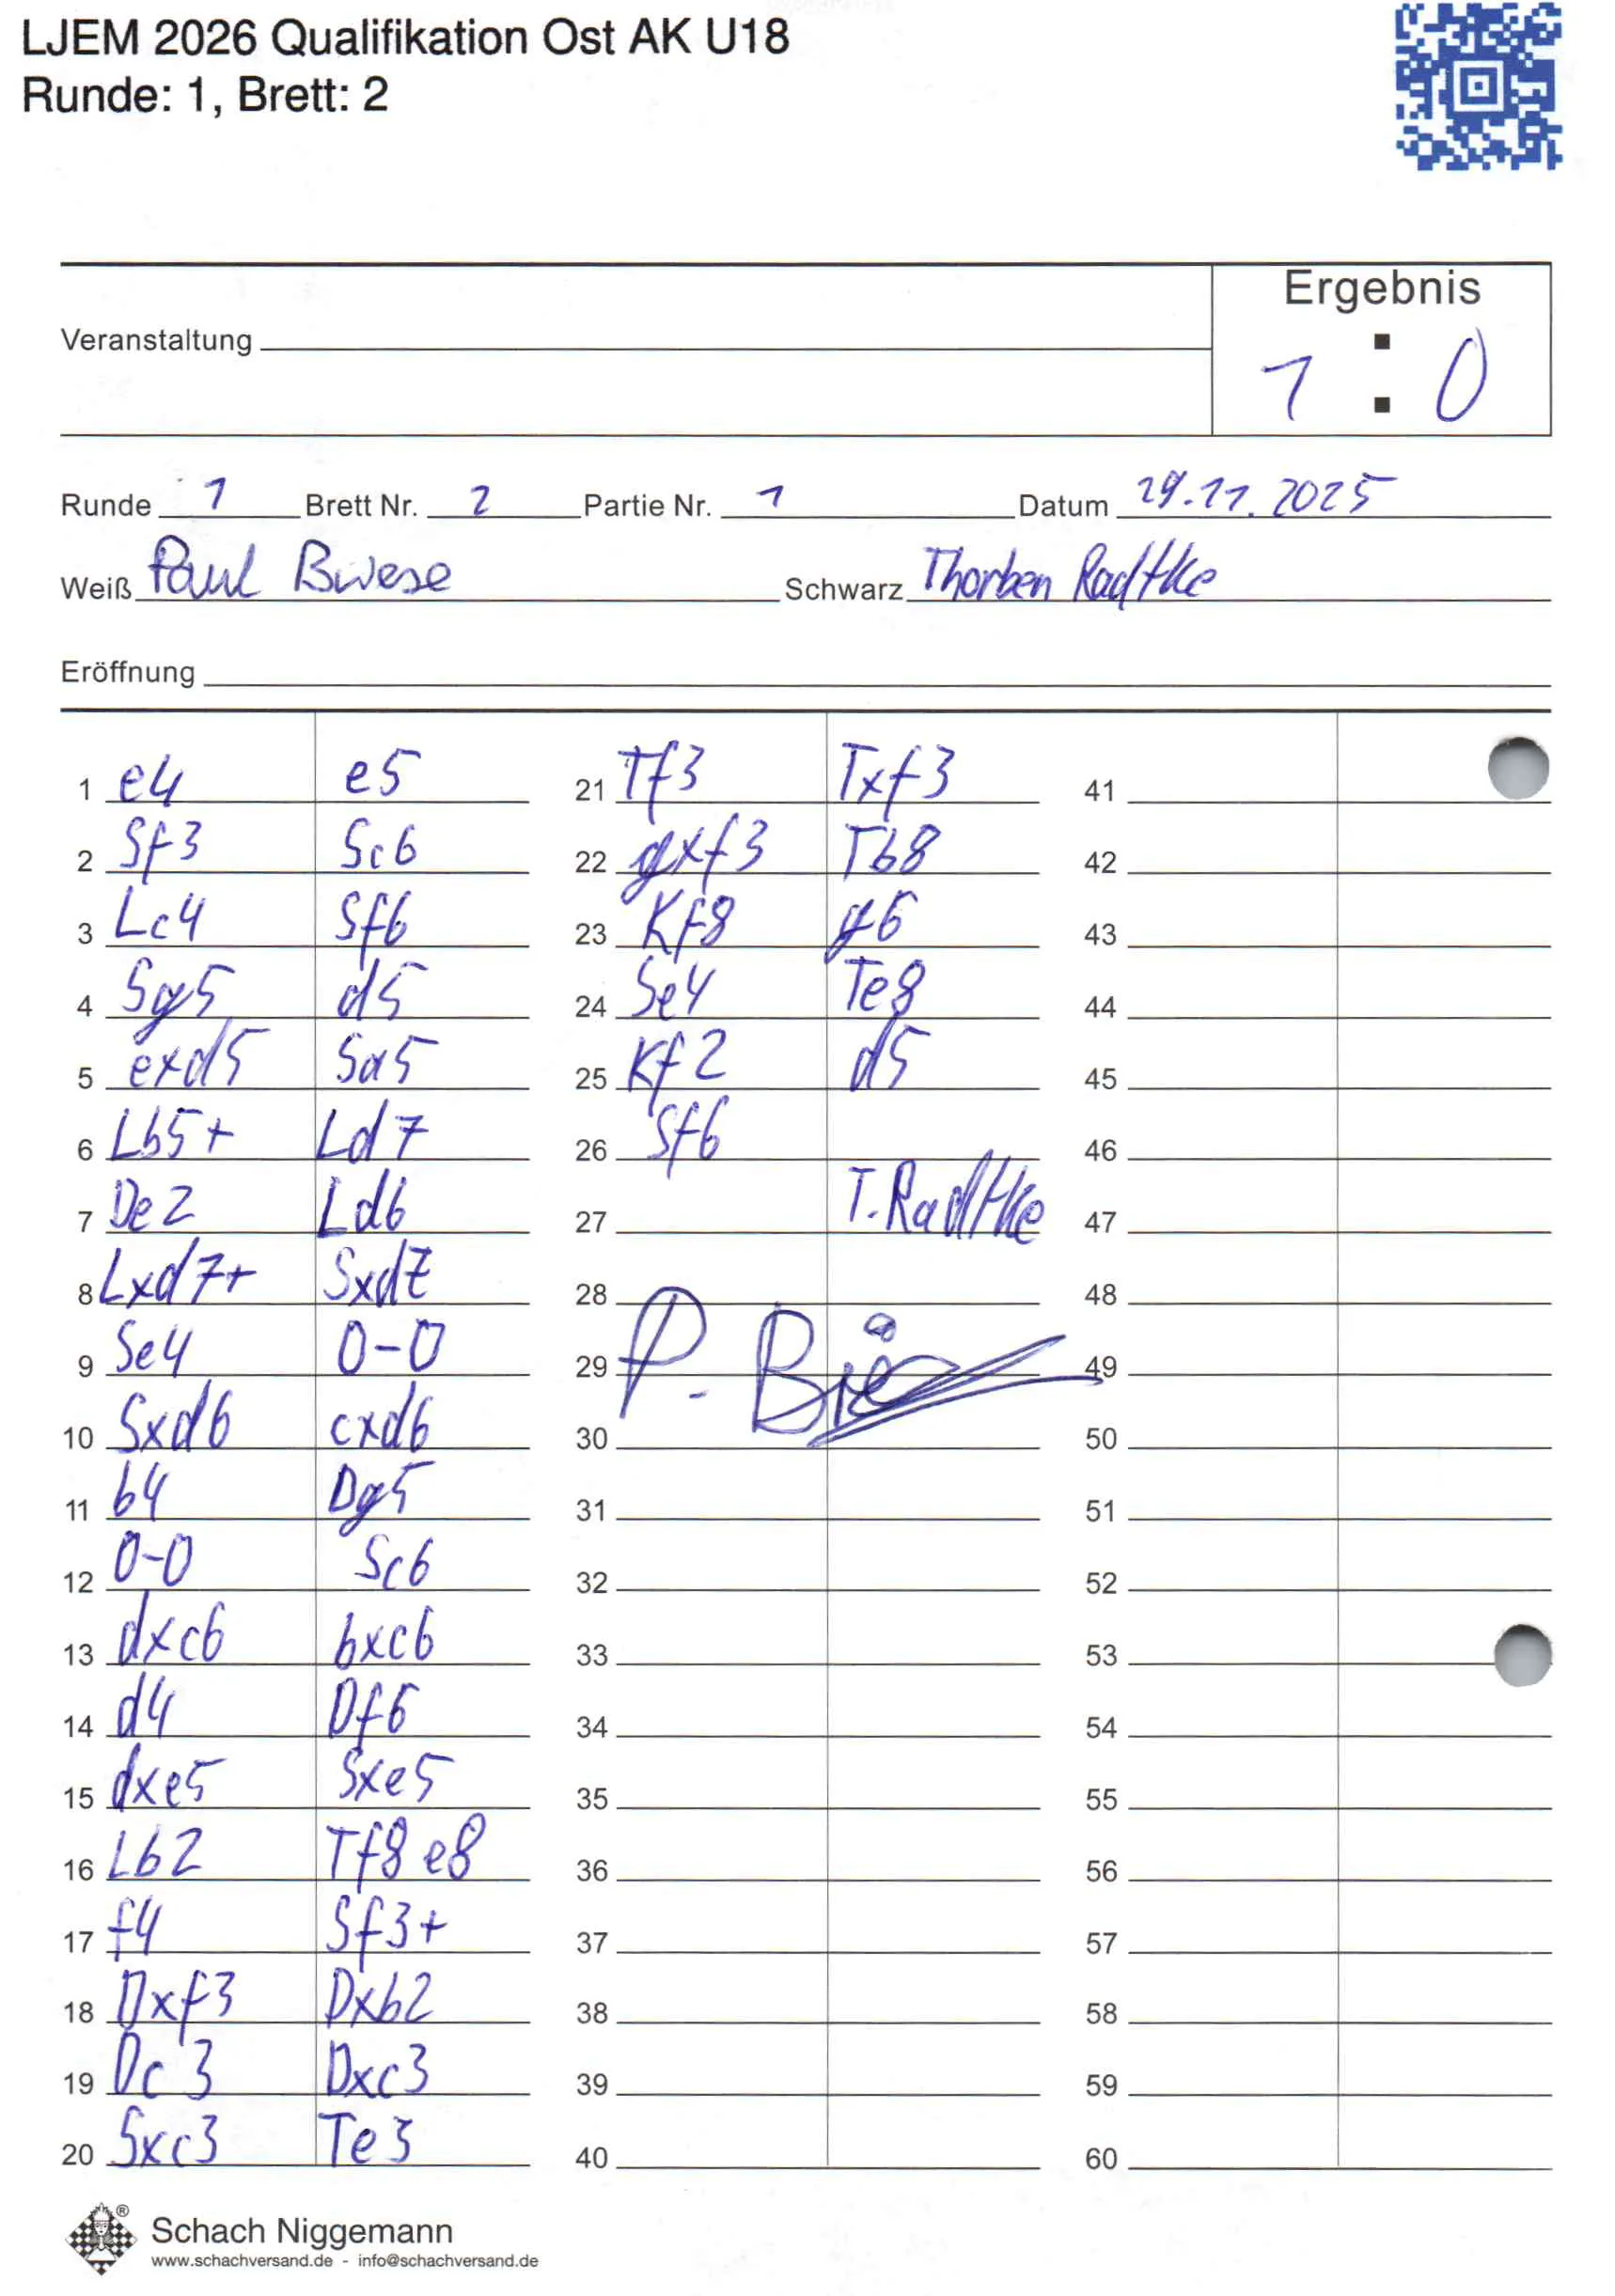 LJEM 2026 Qualifikation Ost AK U18
Runde: 1, Brett: 2
Ergebnis
Veranstaltung
1 : 0
Runde 1 Brett Nr. 2 Partie Nr. 1 Datum 29.11.2025
Weiß Paul Schwarz Thorben Radtke
Eröffnung
1 e4 e5 21 Tf3 Txf3 41
2 Sf3 Sc6 22 gxf3 Tb8 42
3 Lc4 Sf6 23 Kf8 g6 43
4 Sg5 d5 24 Se4 Te8 44
5 exd5 Sa5 25 Kf2 d5 45
6 Lb5+ Ld7 26 Sf6 46
7 De2 Ld6 27 T. Radtke 47
8 Lxd7+ Sxd7 28 48
9 Se4 0-0 29 P. 49
10 Sxd6 cxd6 30 50
11 b4 Dg5 31 51
12 0-0 Sc6 32 52
13 dxc6 bxc6 33 53
14 d4 Df6 34 54
15 dxe5 Sxe5 35 55
16 Lb2 Tf8 e8 36 56
17 f4 Sf3+ 37 57
18 Dxf3 Dxb2 38 58
19 Dc3 Dxc3 39 59
20 Sxc3 Te3 40 60
®
Schach Niggemann
www.schachversand.de - info@schachversand.de